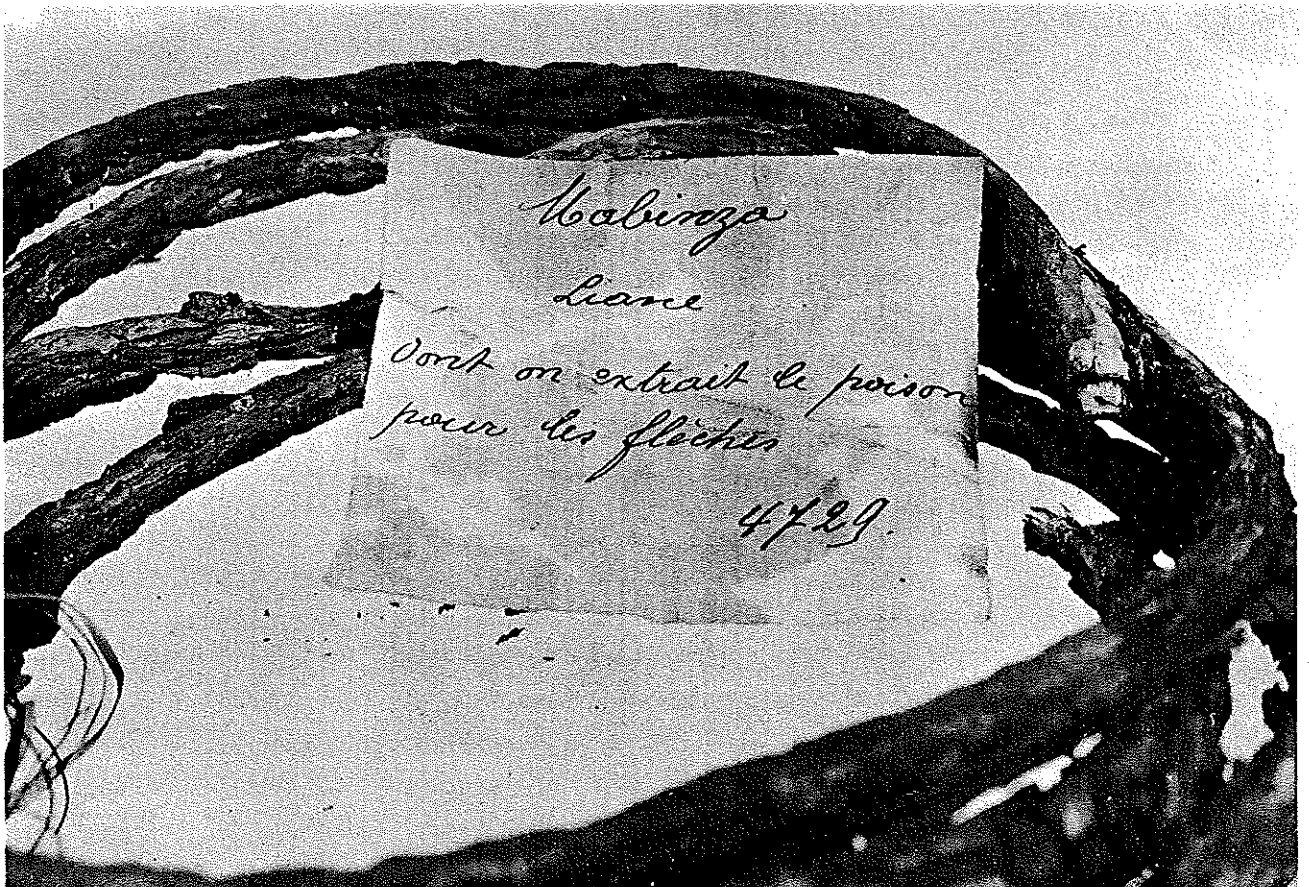 Mabinza
Liane
Dont on extrait le poison
pour les flèches
4729.